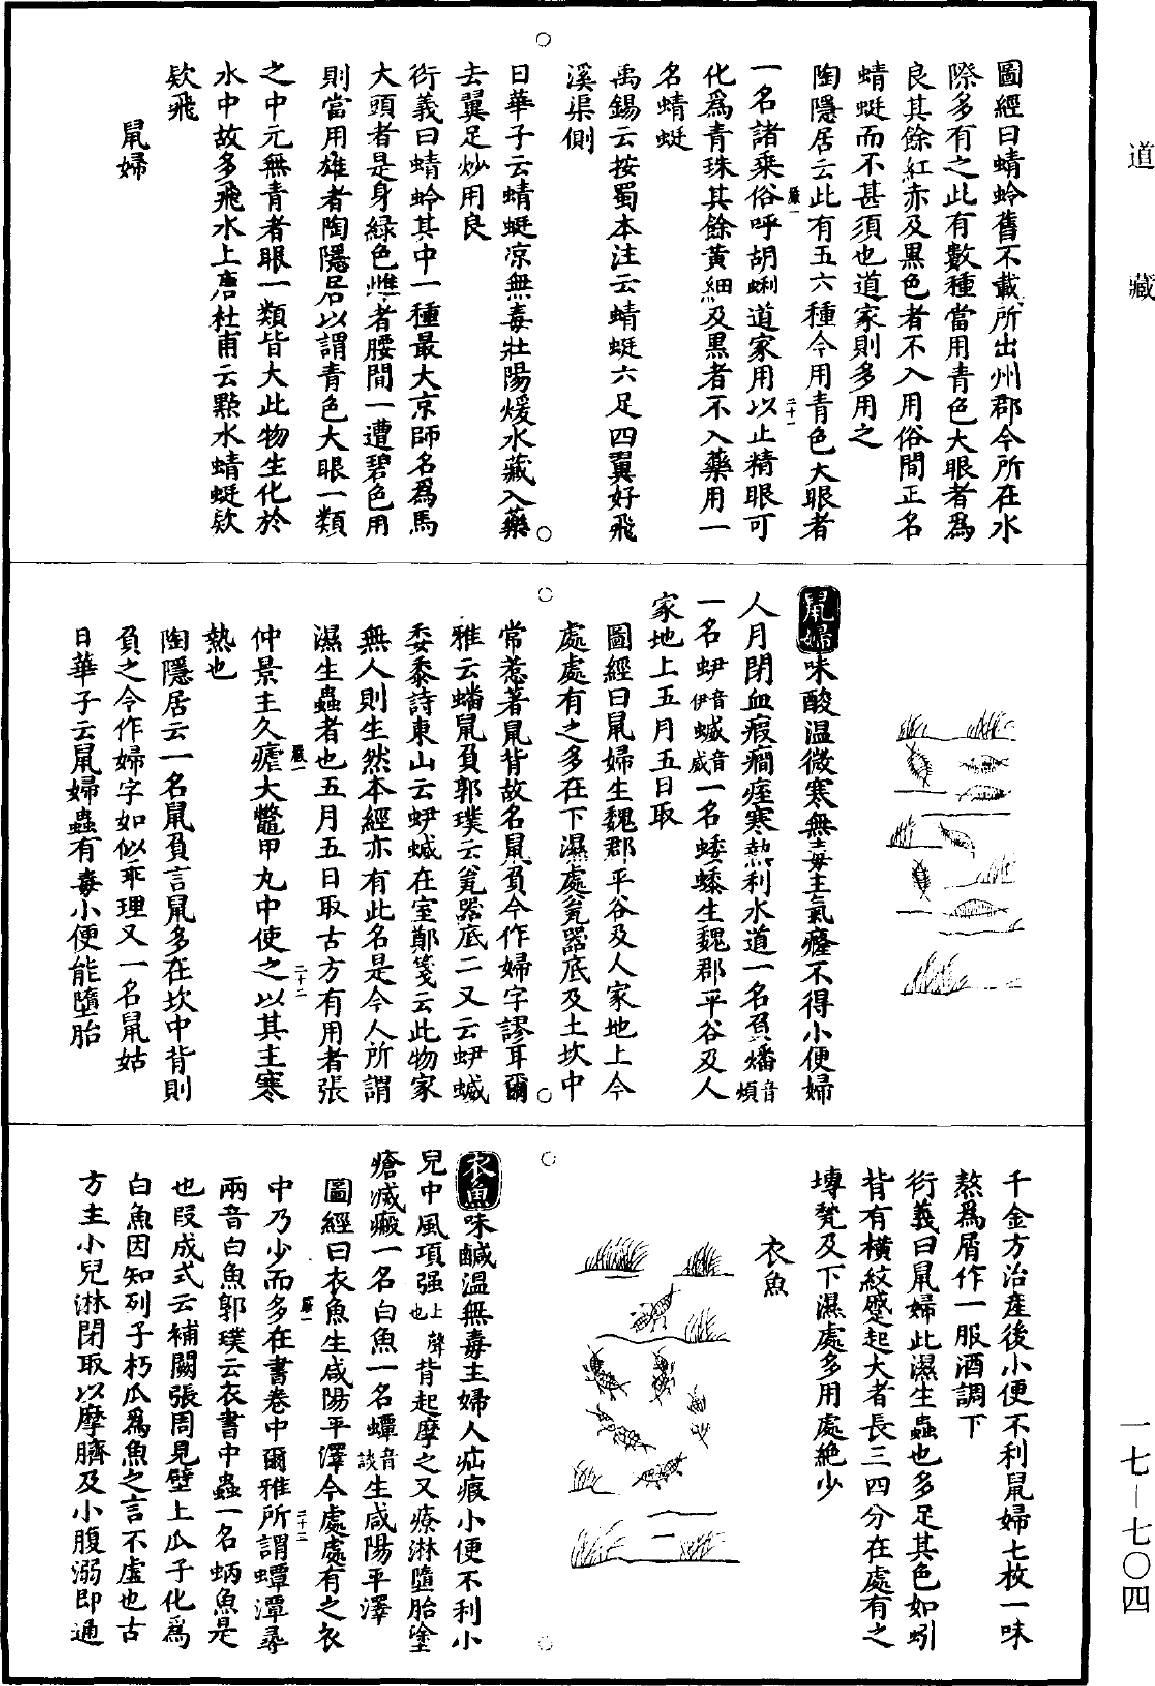 道藏
圖經曰蜻蛉舊不載所出州郡今所在水
際多有之此有數種當用青色大眼者為
良其餘紅赤及黑色者不入用俗間正名
蜻蜓而不甚須也道家則多用之
陶隱居云此有五六種今用青色大眼者
一名諸乘俗呼胡蜊道家用以止精眼可
化為青珠其餘黃細及黑者不入藥用一
名蜻蜓
禹錫云按蜀本注云蜻蜓六足四翼好飛
溪渠側
日華子云蜻蜓凉無毒壯陽煖水藏入藥
去翼足炒用良
衍義曰蜻蛉其中一種最大京師名為馬
大頭者是身緑色雌者腰間一遭碧色用
則當用雄者陶隱居以謂青色大眼一類
之中元無青者眼一類皆大此物生化於
水中故多飛水上唐杜甫云點水蜻蜓欵
欵飛
鼠婦
鼠婦味酸温微寒無毒主氣癃不得小便婦
人月閉血瘕癎痓寒熱利水道一名負蟠音煩
一名蛜音伊蝛音威一名蜲蟋生魏郡平谷及人
家地上五月五日取
圖經曰鼠婦生魏郡平谷及人家地上今
處處有之多在下濕處瓮器底及土坎中
常惹著鼠背故名鼠負今作婦字謬耳爾
雅云蟠鼠負郭璞云瓮器底二又云蛜蝛
委黍詩東山云蛜蝛在室鄭箋云此物家
無人則生然本經亦有此名是今人所謂
濕生蟲者也五月五日取古方有用者張
仲景主久瘧大鼈甲丸中使之以其主寒
熱也
陶隱居云一名鼠負言鼠多在坎中背則
負之今作婦字如似乖理又一名鼠姑
日華子云鼠婦蟲有毒小便能墮胎
千金方治産後小便不利鼠婦七枚一味
熬為屑作一服酒調下
衍義曰鼠婦此濕生蟲也多足其色如蚓
背有横紋蹙起大者長三四分在處有之
塼甃及下濕處多用處絶少
衣魚
衣魚味鹹温無毒主婦人疝瘕小便不利小
兒中風項强上聲也背起摩之又療淋墮胎塗
瘡滅瘢一名白魚一名蟫音談生咸陽平澤
圖經曰衣魚生咸陽平澤今處處有之衣
中乃少而多在書卷中爾雅所謂蟫潭尋
兩音白魚郭璞云衣書中蟲一名蛃魚是
也段成式云補闕張周見壁上瓜子化為
白魚因知列子朽瓜為魚之言不虛也古
方主小兒淋閉取以摩臍及小腹溺即通
一七—七〇四